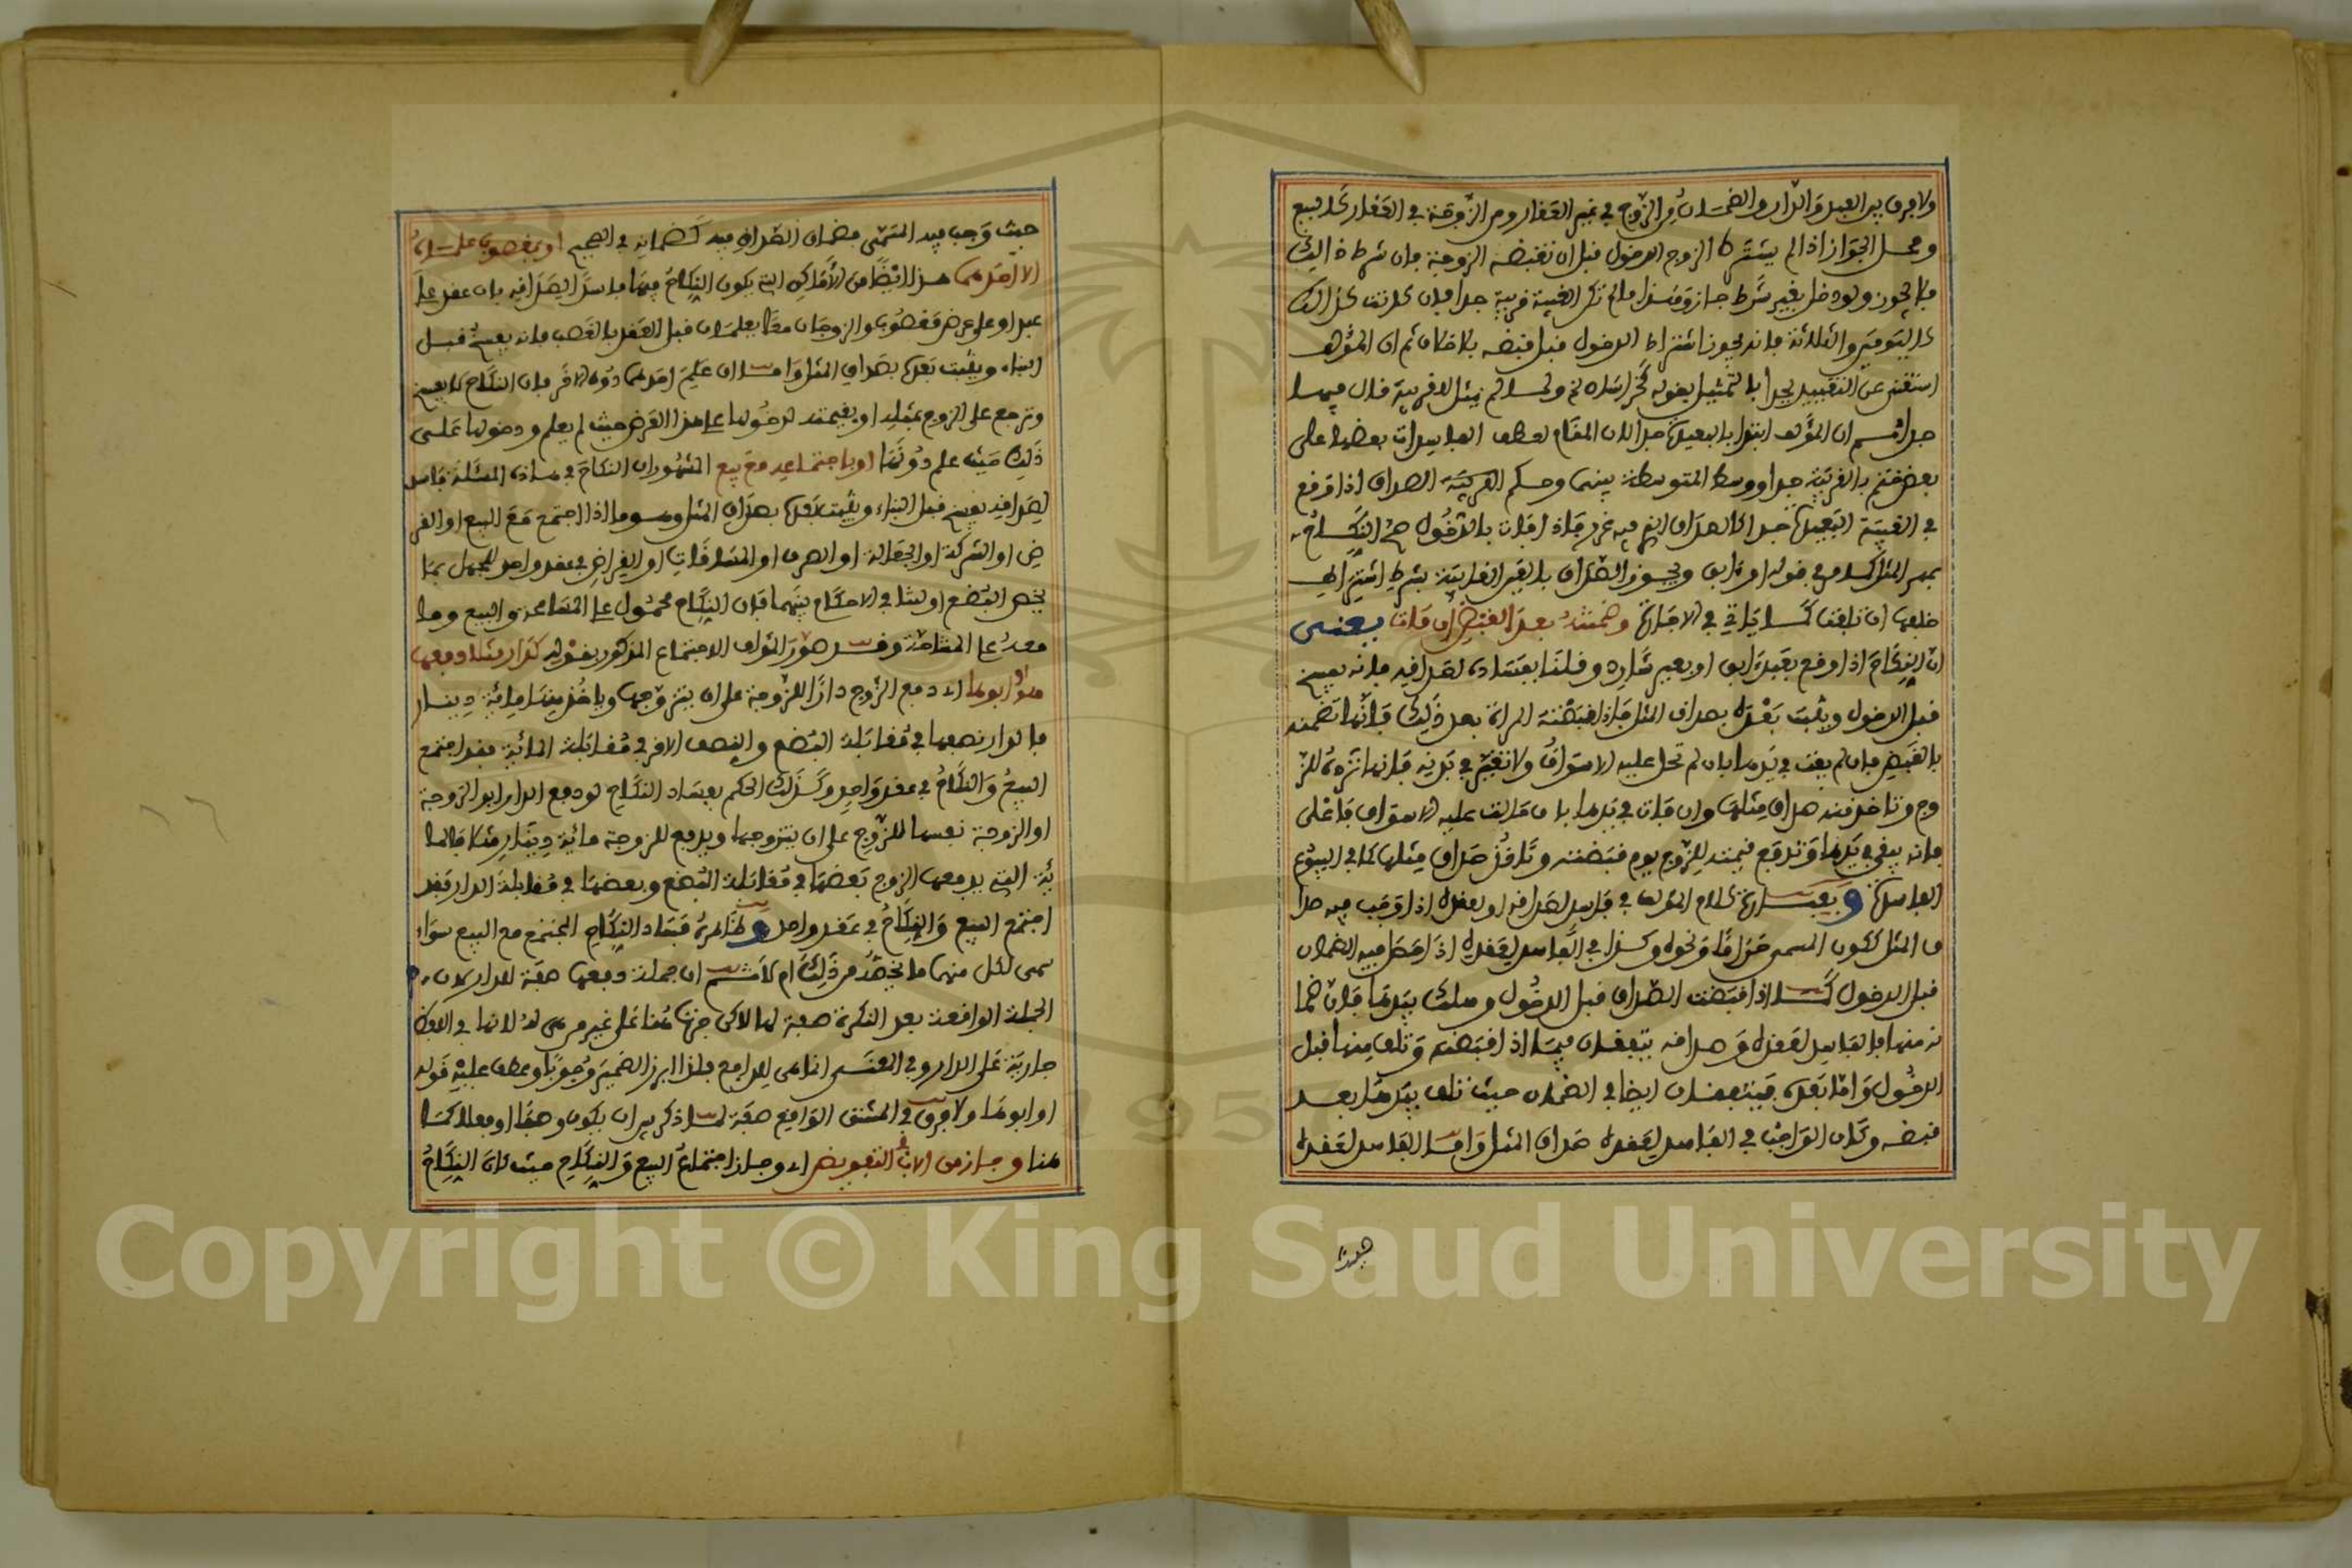 ولا فرق بين العبد والدار والضمان من الزوج في غير العقار ومن الزوجة في العقار كالبيع
ومحل الجواز اذا لم يشترط الزوج الدخول قبل ان تقبضه الزوجة فان شرط ذالك
فلا يجوز ولو دخل بغير شرط جاز وهذا ما لم تكن الغيبة قريبة جدا فان كانت كذالك
كاليومين والثلاثة فانه يجوز اشتراط الدخول قبل قبضه بلا خلاف ثم ان المؤلف
استغنى عن التقييد بجدا بالتمثيل بقوله كخراسان ولما لم يمثل للقريبة قال فيها
جدا ثم ان المؤلف ابتدا بالبعيدة جدا لان المقام لعطف الفاسدات بعضها على
بعض وختم بالقريبة جدا ووسط المتوسطة بينهما وحكم الصداق اذا وقع
في الغيبة البعيدة جدا كالصداق الذي فيه غرر فاذا فات بالدخول صح النكاح
بمهر المثل كما مر في قوله او بابق ويجوز الصداق بالغير الغايبة بشرط اشتراط
خلفها ان تلفت كما ياتي في الاجارة وضمنته بعد القبض ان فات يعني
ان النكاح اذا وقع بعبد ابق او بعير شارد وقلنا بفساده لصداقه فانه يفسخ
قبل الدخول ويثبت بعده بصداق المثل فاذا قبضته المراة بعد ذلك فانها تضمنه
بالقبض فان لم يفت في يدها بان لم تحل عليه الاسواق ولا تغير في بدنه فانها ترده للز
وج وتاخذ منه صداق مثلها وان فات في يدها بان حالت عليه الاسواق فاعلى
فانه يبقى في يدها وتدفع قيمته للزوج يوم قبضته وتاخذ صداق مثلها كما في البيوع
الفاسدة و بعبارة كلام المؤلف في فاسد لصداقه او لعقده اذا وجب فيه صدا
ق المثل ككون المسمى حراما ونحوه وكذا في الفاسد لعقده اذا حصل فيه الضمان
قبل الدخول كما اذا قبضت الصداق قبل الدخول وهلك بيدها فان ضما
نه منها فالفاسد لعقده وصداقه يتفقان فيما اذا قبضته وتلف منها قبل
الدخول واما بعده فيتفقان ايضا في الضمان حيث تلف بيدها بعد
قبضه وكان الواجب في الفاسد لعقده صداق المثل واما الفاسد لعقده
حيث
حيث وجب فيه المسمى فضمان الصداق فيه كضمانه في الصحيح او بمغصوب علماه
لا احدهما هذا ايضا من الاماكن التي يكون النكاح فيها فاسدا لصداقه بان عقد على
عبد او على عرض مغصوب والزوجان معا يعلمان قبل العقد بالغصب فانه يفسخ قبل
البناء ويثبت بعده بصداق المثل واما ان علم احدهما دون الاخر فان النكاح لا يفسخ
وترجع على الزوج بمثله او بقيمته لدخولها على هذا العرض حيث لم يعلم ودخولها على
ذلك حيث علم دونها او باجتماعه مع بيع المشهور ان النكاح في هذه المسئلة فاسد
لصداقه يفسخ قبل البناء ويثبت بعده بصداق المثل وهو ما اذا اجتمع مع البيع او القر
ض او الشركة او الجعالة او الصرف او المساقات او القراض في عقد واحد للجهل بما
يخص البضع او لتنافي الاحكام بينهما فان النكاح محمول على المكارمة والبيع وما
معه على المشاحة وقد صور المؤلف الاجتماع المذكور بقوله كدار مثلا دفعها
هو او ابوها اي دفع الزوج دارا للزوجة على ان يتزوجها وياخذ منها مائة دينار
فالدار نصفها في مقابلة البضع والنصف الاخر في مقابلة المائة فقد اجتمع
البيع والنكاح في عقد واحد وكذلك الحكم بفساد النكاح لو دفع الدار ابو الزوجة
او الزوجة نفسها للزوج على ان يتزوجها ويدفع للزوجة مائة دينار مثلا فالما
ئة التي يدفعها الزوج بعضها في مقابلة البضع وبعضها في مقابلة الدار فقد
اجتمع البيع والنكاح في عقد واحد و ظاهره فساد النكاح المجتمع مع البيع سواء
سمى لكل منهما ما يخصه من ذلك ام لا ثم ان جملة دفعها صفة للدار لان
الجملة الواقعة بعد النكرة صفة لها لاكن جرت هنا على غير من هي له لانها في اللفظ
جارية على الدار وفي المعنى انما هي للدافع فلذا ابرز الضمير وجوبا وعطف عليه قوله
او ابوها ولا فرق في المشتق الواقع صفة لما ذكر بين ان يكون وصفا او فعلا كما
هنا وجاز من الاب التفويض اي وجاز اجتماع البيع والنكاح حيث كان النكاح